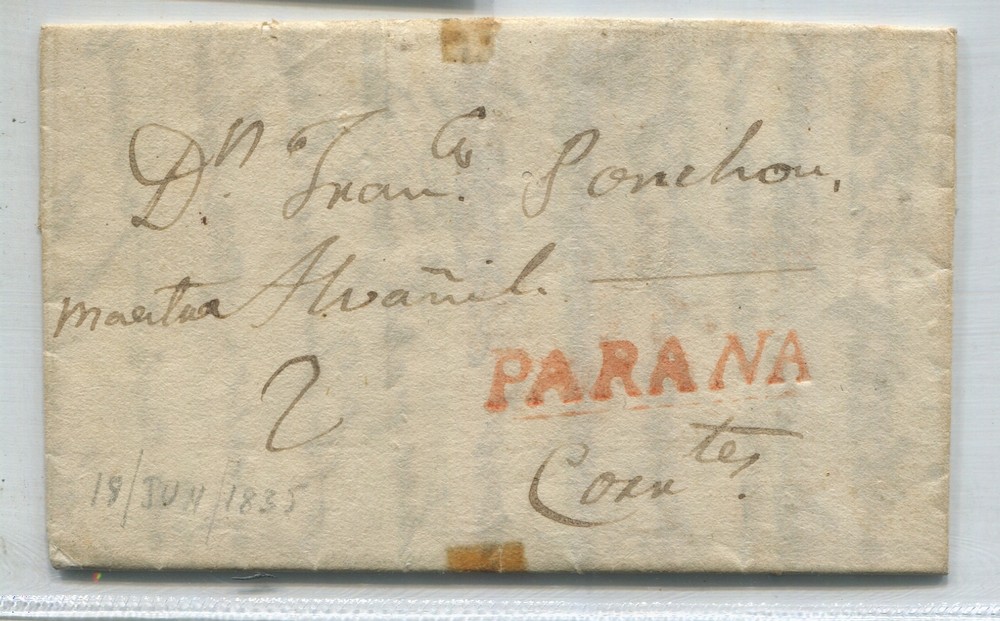 Dn. Franco. Ponchon,
Maestro Alvañil.
2
PARANA
Corrtes.
18/JUN/1835